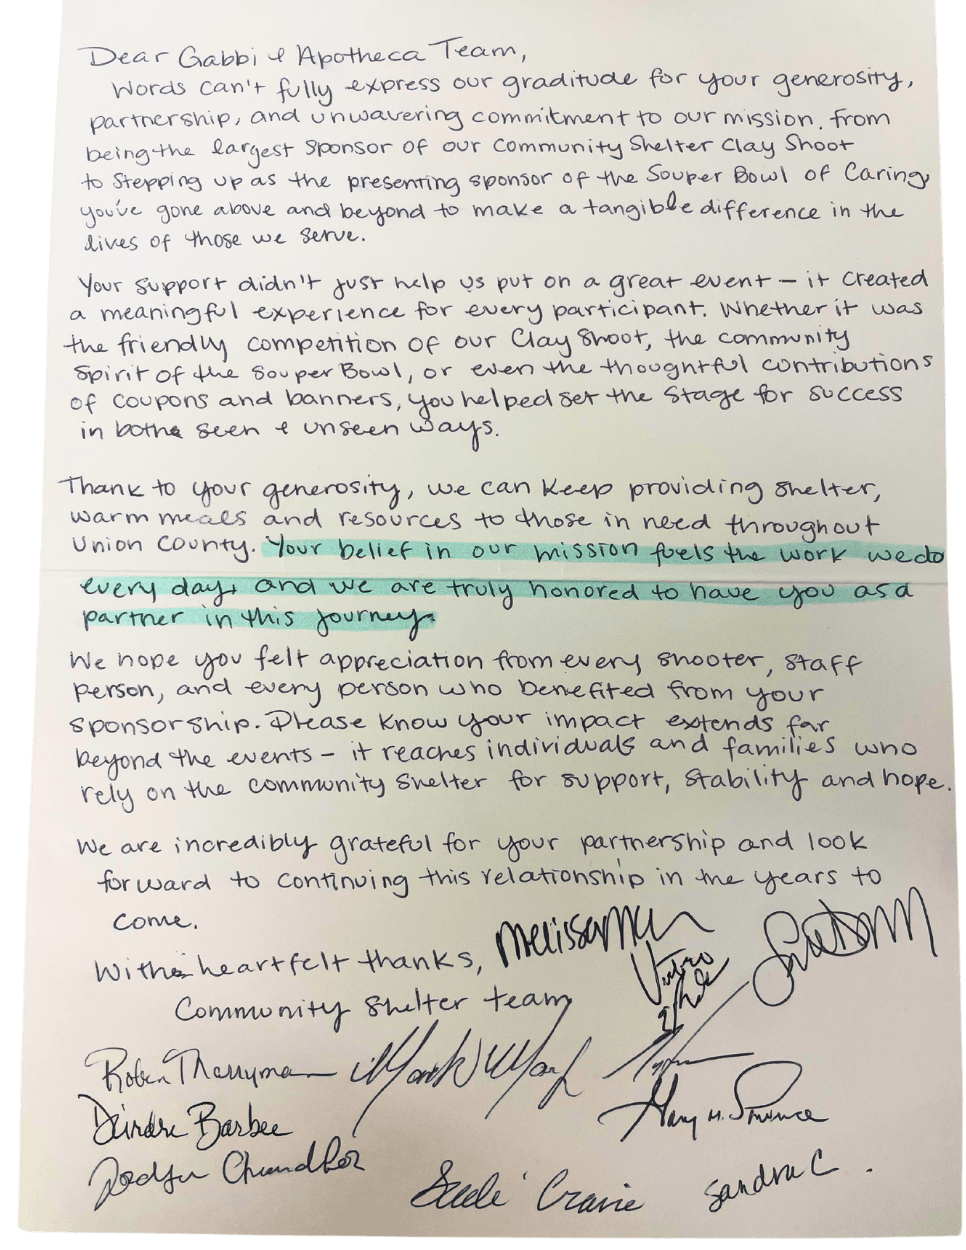 Dear Gabbi & Apotheca Team,
Words can't fully express our graditude for your generosity,
partnership, and unwavering commitment to our mission. From
being the largest sponsor of our Community Shelter Clay Shoot
to stepping up as the presenting sponsor of the Souper Bowl of Caring,
you've gone above and beyond to make a tangible difference in the
lives of those we serve.
Your support didn't just help us put on a great event - it created
a meaningful experience for every participant. Whether it was
the friendly competition of our Clay Shoot, the community
spirit of the Souper Bowl, or even the thoughtful contributions
of coupons and banners, you helped set the stage for success
in both seen & unseen ways.
Thank to your generosity, we can keep providing shelter,
warm meals and resources to those in need throughout
Union County. Your belief in our mission fuels the work we do
every day, and we are truly honored to have you as a
partner in this journey.
We hope you felt appreciation from every shooter, staff
person, and every person who benefited from your
sponsorship. Please know your impact extends far
beyond the events - it reaches individuals and families who
rely on the community shelter for support, stability and hope.
We are incredibly grateful for your partnership and look
forward to continuing this relationship in the years to
come.
With heartfelt thanks,
Community Shelter team
Melissa
Robin Merryman
Mark
Deirdre Barbee
Chandler
Cravie
Sandra C.